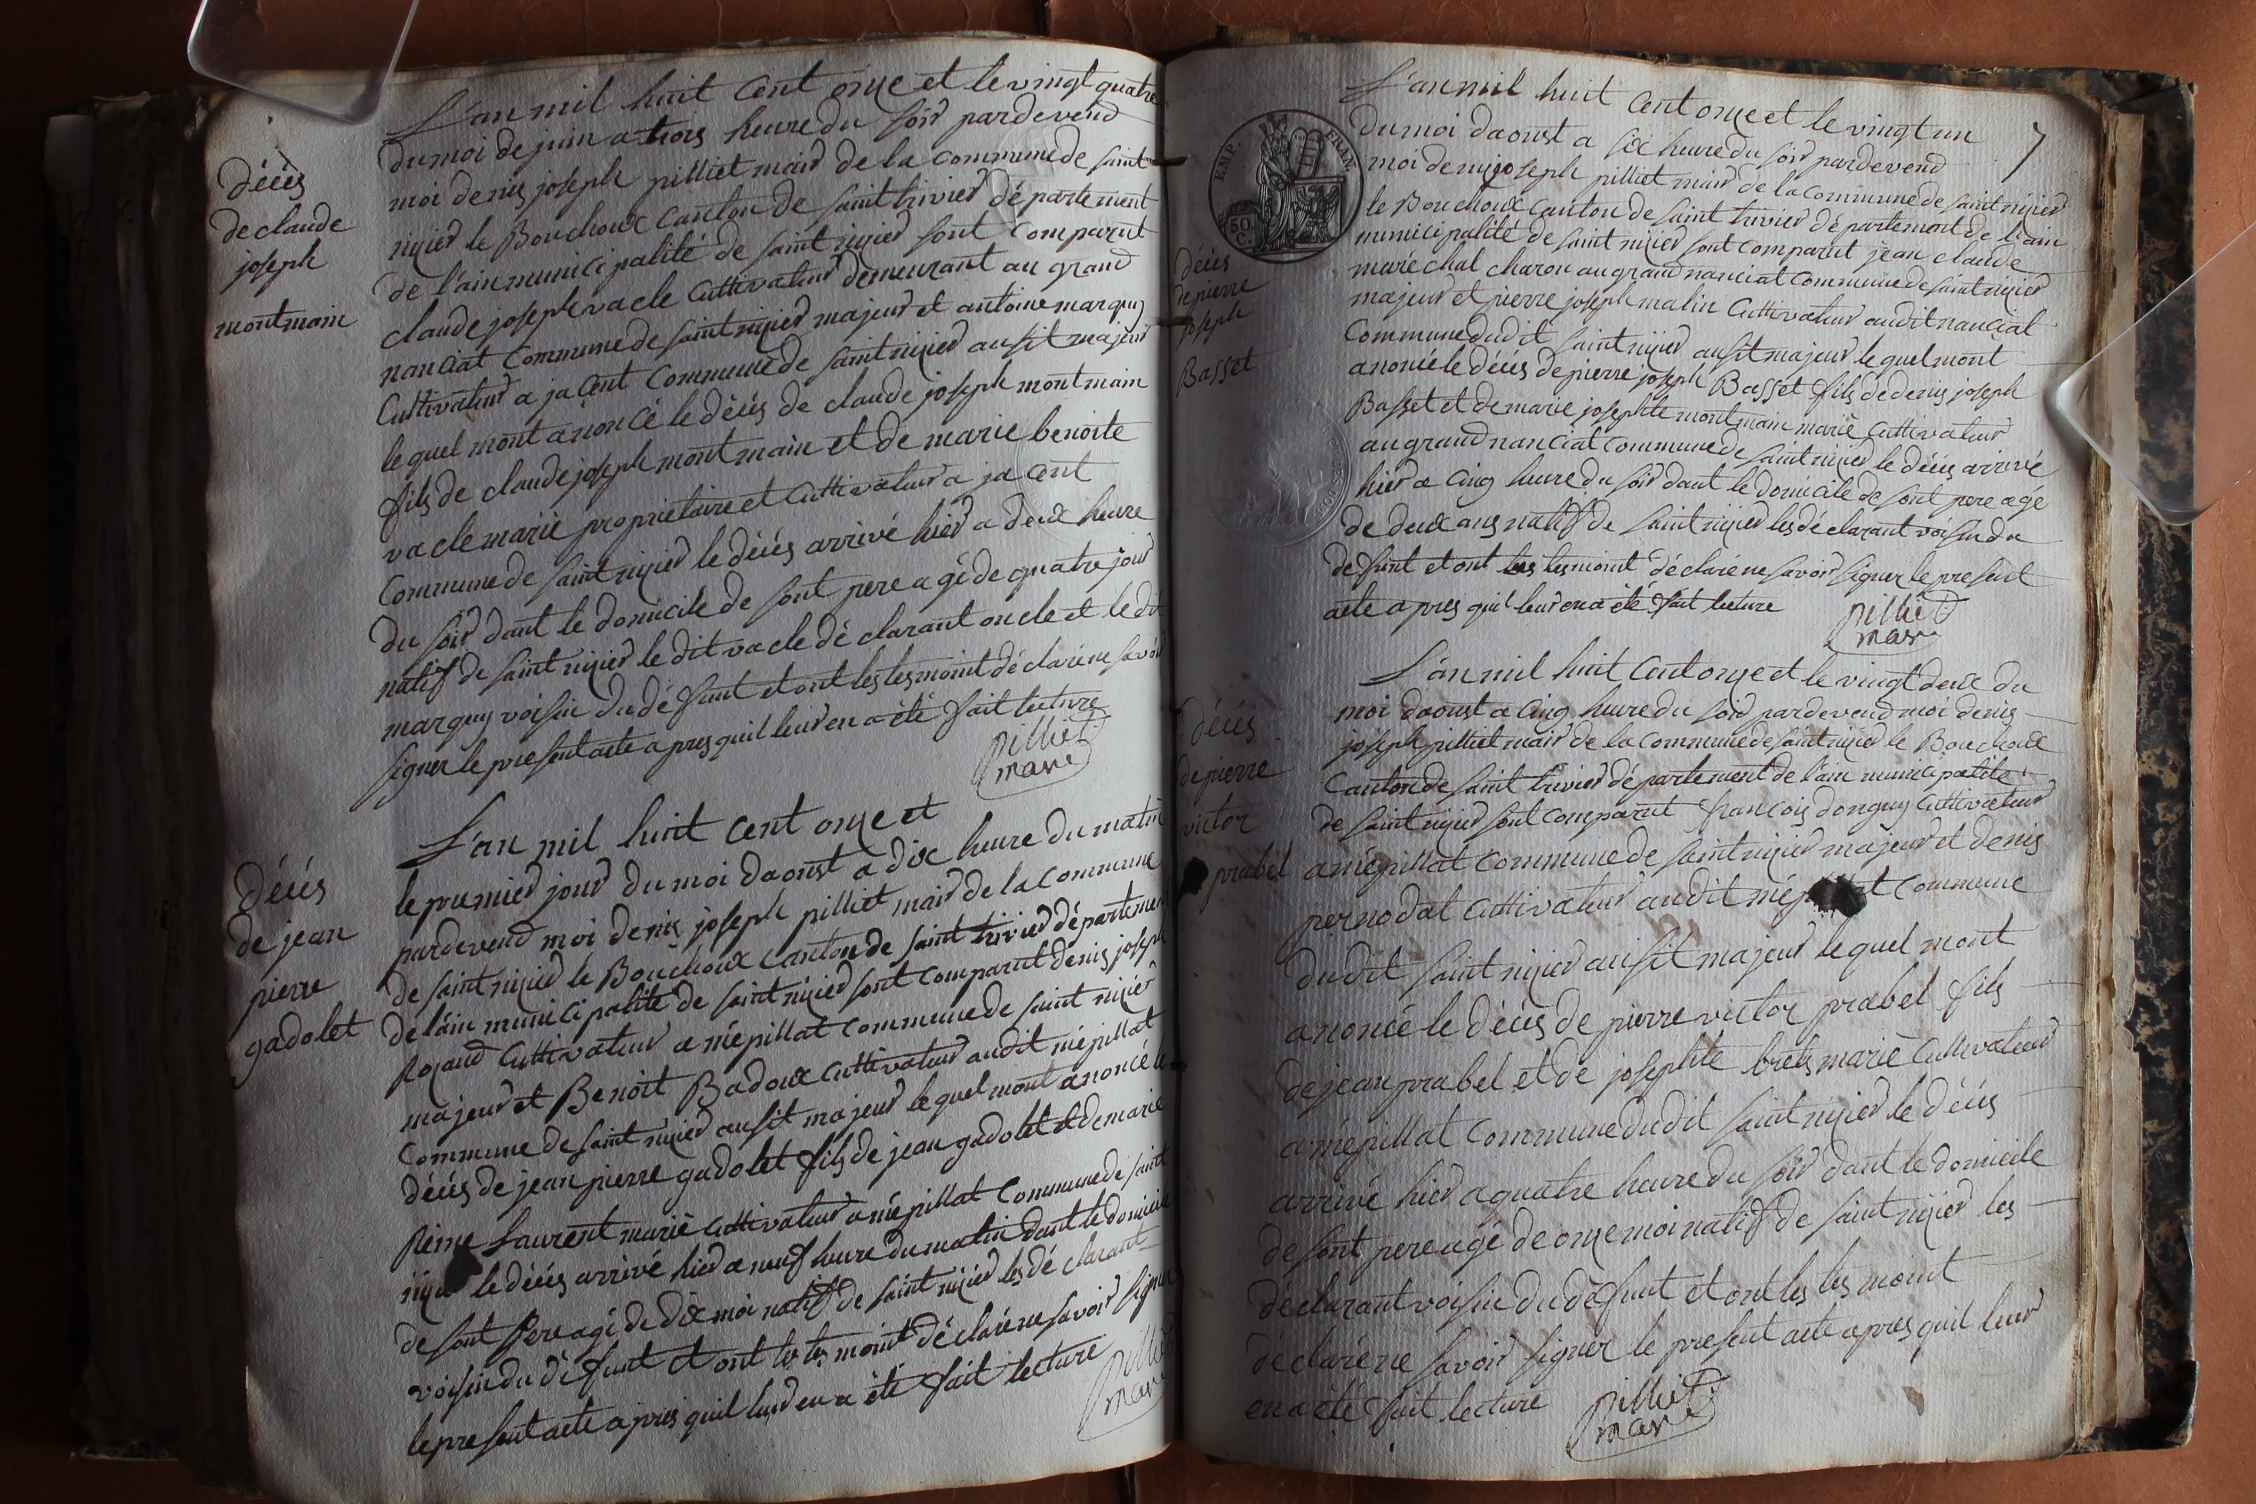 décès
de claude
joseph
montmain
L'an mil huit cent onze et le vingt quatre
du moi de juin a trois heure du soir pardevend
moi denis joseph pilliet mair de la commune de saint
nizier le Bouchoux canton de saint trivier département
de l'ain municipalité de saint nizier sont comparut
claude joseph vacle cultivateur demeurant au grand
nanciat commune de saint nizier majeur et antoine marguy
cultivateur a jacent commune de saint nizier ausit majeur
le quel mont anoncé le décés de claude joseph montmain
fils de claude joseph montmain et de marie benoite
vacle marié propriétaire et cultivateur a jacent
commune de saint nizier le décés arrivé hier a deux heure
du soir dant le domicile de sont pere agé de quatre jour
natif de saint nizier le dit vacle déclarant oncle et le dit
marguy voisin du défunt et ont les tesmoint déclaré ne savoir
signer le present acte apres quil leur en a été fait lecture
pilliet
mair
décés
de jean
pierre
gadolet
L'an mil huit cent onze et
le premier jour du moi daoust a dix heure du matin
pardevend moi denis joseph pilliet mair de la commune
de saint nizier le Bouchoux canton de saint trivier département
de lain municipalité de saint nizier sont comparut denis joseph
Rozand cultivateur a mépillat commune de saint nizier
majeur et Benoit Badoux cultivateur audit mépillat
commune de saint nizier ausit majeur le quel mont anoncé le
décés de jean pierre gadolet fils de jean gadolet et de marie
Reine Laurent marié cultivateur a mépillat commune de saint
nizier le décés arrivé hier a neuf heure du matin dant le domicile
de sont pere agé de dix moi natif de saint nizier les déclarant
voisin du défunt et ont les tesmoint déclaré ne savoir signer
le present acte apres quil leur en a été fait lecture
pilliet
mair
EMP. FRAN.
50
C.
7
décés
de pierre
joseph
Basset
L'an mil huit cent onze et le vingt un
du moi daoust a six heure du soir pardevend
moi denis joseph pilliet mair de la commune de saint nizier
le Bouchoux canton de saint trivier département de lain
municipalité de saint nizier sont comparut jean claude
maréchal charon au grand nanciat commune de saint nizier
majeur et pierre joseph malin cultivateur audit nanciat
commune dudit saint nizier ausit majeur le quel mont
anoncé le décés de pierre joseph Basset fils de denis joseph
Basset et de marie josephte montmain marié cultivateur
au grand nanciat commune de saint nizier le décés arrivé
hier a cinq heure du soir dant le domicile de sont pere agé
de deux ans natif de saint nizier les déclarant voisin du
défunt et ont les tesmoint déclaré ne savoir signer le present
acte apres quil leur en a été fait lecture
pilliet
mair
décés
de pierre
victor
prabel
L'an mil huit cent onze et le vingt deux du
moi daoust a cinq heure du soir pardevend moi denis
joseph pilliet mair de la commune de saint nizier le Bouchoux
canton de saint trivier département de lain municipalité
de saint nizier sont comparut françois donguy cultivateur
a mépillat commune de saint nizier majeur et denis
pernodat cultivateur audit mépillat commune
dudit saint nizier ausit majeur le quel mont
anoncé le décés de pierre victor prabel fils
de jean prabel et de josephte brets marié cultivateur
a mépillat commune dudit saint nizier le décés
arrivé hier a quatre heure du soir dant le domicile
de sont pere agé de onze moi natif de saint nizier les
déclarant voisin du défunt et ont les tesmoint
déclaré ne savoir signer le present acte apres quil leur
en a été fait lecture
pilliet
mair